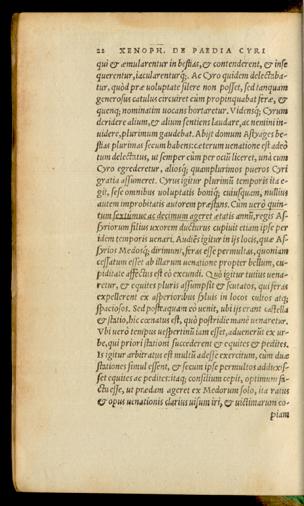 22 XENOPH. DE PAEDIA CYRI
qui & æmularentur in bestias, & contenderent, & inse
querentur, iacularenturq́;. Ac Cyro quidem delectaba-
tur, quòd præ uoluptate silere non posset, sed tanquam
generosus catulus circuiret cùm propinquabat feræ, &
quenq; nominatim uocans hortaretur. Vidensq́; Cyrum
deridere alium, & alium sentiens laudare, ac nemini in-
uidere, plurimum gaudebat. Abijt domum Astyages be-
stias plurimas secum habens: cæterum uenatione est adeò
tum delectatus, ut semper cùm per ociũ liceret, unà cum
Cyro egrederetur, aliosq́; quamplurimos pueros Cyri
gratia assumeret. Cyrus igitur plurimũ temporis ita e-
git, sese omnibus uoluptatis boniq́; cuiusquam, nullius
autem improbitatis autorem præstans. Cum uerò quin-
tum sextumue ac decimum ageret ætatis annũ, regis As-
syriorum filius uxorem ducturus cupiuit etiam ipse per
idem temporis uenari. Audiẽs igitur in ijs locis, quæ As-
syrios Medosq́; dirimunt, feras esse permultas, quoniam
cessatum esset ab illarum uenatione propter bellum, cu-
piditate affectus est eò exeundi. Quò igitur tutius uena-
retur, & equites pluris assumpsit & scutatos, qui feras
expellerent ex asperioribus syluis in locos cultos atq;
spaciosos. Sed postea quam eò uenit, ubi ijs erant castella
& statio, hic cœnatus est, quò postridie manè uenaretur.
Vbi uerò tempus uespertinũ iam esset, aduenerũt ex ur-
be, qui priori stationi succederent & equites & pedites.
Is igitur arbitratus est multũ adesse exercitum, cùm duæ
stationes simul essent, & secum ipse permultos addixis-
set equites ac pedites: itaq; consilium cepit, optimum fa-
ctu esse, ut prædam ageret ex Medorum solo, ita ratus
& opus uenationis clarius uisum iri, & uictimarum co-
piam